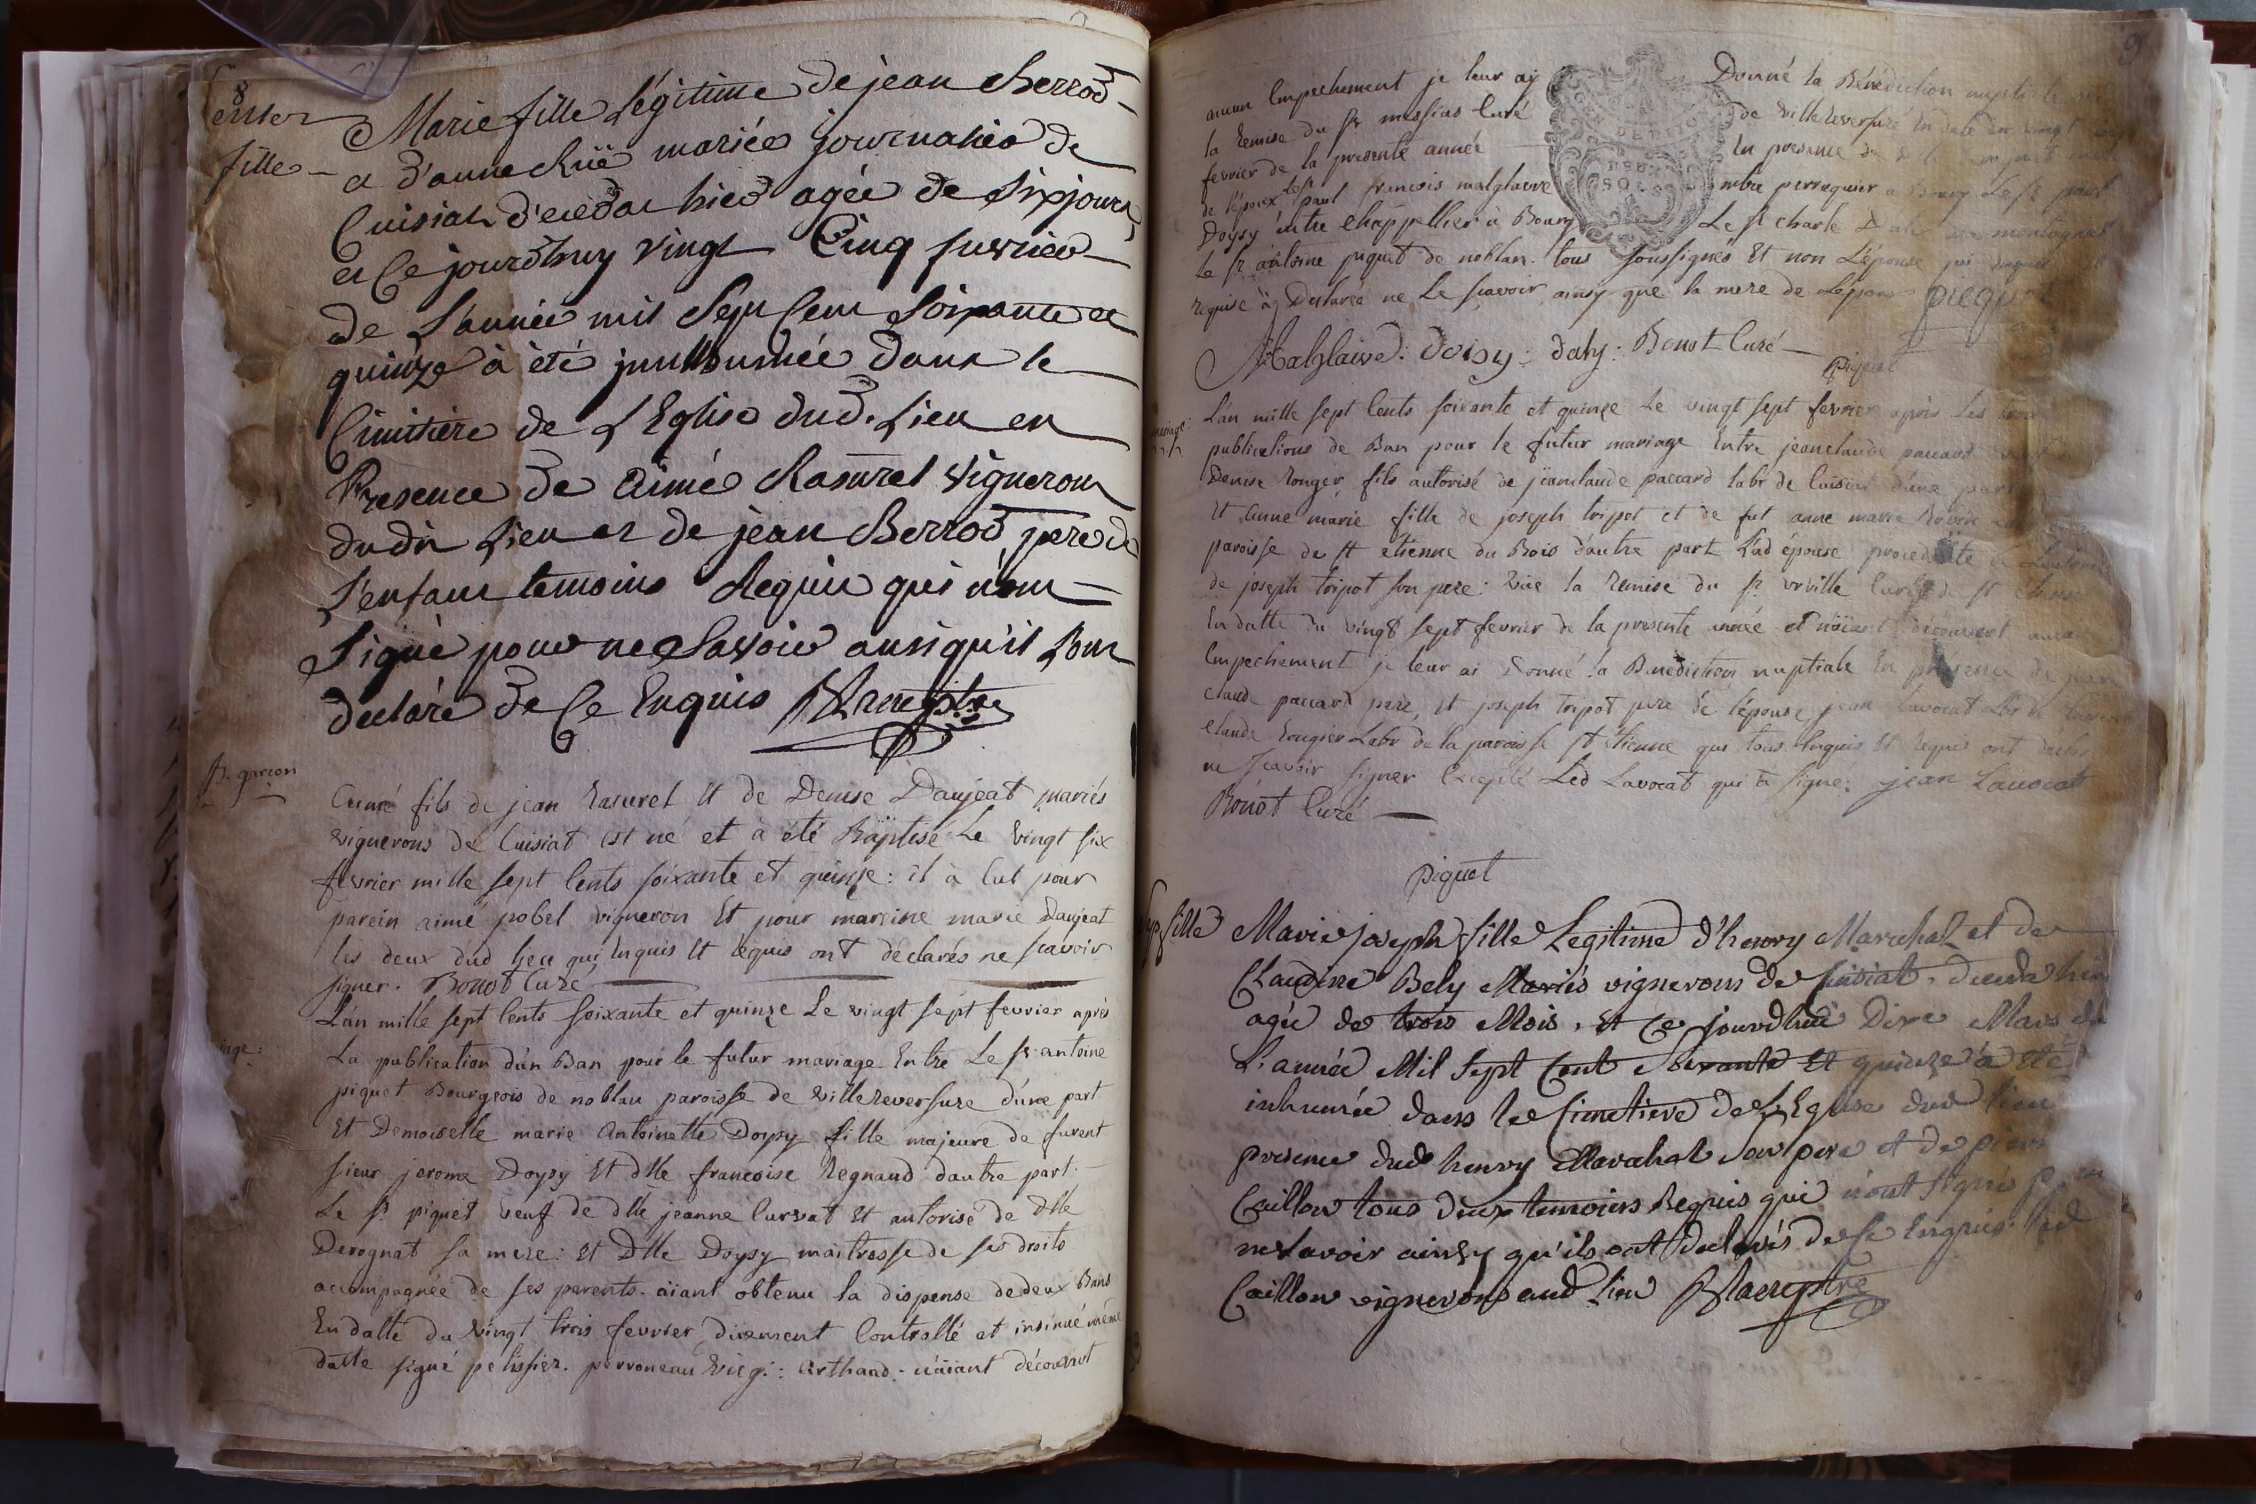 8
fille
Marie fille Légitime de jean Berrod
et d'anne mariés journalier de
Cuisiat décédat hier agée de Sixjours
et Ce jourd'huy vingt Cinq fuvrier
de L'année mil Sept Cent Soixante et
quinze à été dans le
Cimitière de L'Eglise dud. Lieu en
Presence de aimé Rasurel vigneron
dudit Lieu et de jean Berrod pere de
L'enfant temoins Requis qui n'ont
Signé pour ne Savoir ansi qu'il L'ont
déclaré de Ce Enquis
B. garcon
aimé fils de jean Rasurel et de Denise Daujeat mariés
vignerons de Cuisiat est né et à été Baptisé Le vingt six
fevrier mille sept Cents soixante et quinze : il à Eut pour
parein aimé pobel vigneron Et pour mareine marie Daujeat
les deux dud lieu qui Enquis et requis ont déclarés ne scavoir
signer. Bonot Curé
L'an mille sept Cents soixante et quinze Le vingt sept fevrier après
iage :
La publication d'un Ban pour le futur mariage Entre Le sr antoine
piquet Bourgeois de noblan paroisse de villereversure d'une part
Et Demoiselle marie antoinette Doysy fille majeure de furent
sieur jerome Doysy Et dlle francoise Regnaud dautre part.
Le sr piquet veuf de dlle jeanne Curvat Et autorisé de dlle
Derognat sa mere : Et Dlle Doysy maitresse de ses droits
accompagnée de ses parents. aiant obtenu la dispense dedeux Bans
En datte du vingt trois fevrier, duement Controllé et insinué même
datte signé pelissier. perroneau vicg. : arthaud. n'aiant découvert
9
aucun Empechement je leur aÿ Donné la Bénédiction nuptiale
la Remise du sr messias Curé de villereversure En date du vingt
fevrier de la presente année En presence de
de l'époux Le sr paul francois malglaive mtre perruquier a Bourg Le sr paul
Doysy mtre chappellier à Bourg Le sr charle
Le sr antoine piquet de noblan. tous soussignés Et non L'épouse
requise à Declarée ne Le scavoir ainsy que la mere de L'époux piquet
Malglaive : doisy : daly : Bonot Curé
piquet
mariage
L'an mille sept Cents soixante et quinze Le vingt sept fevrier après Les
publications de Ban pour le futur mariage Entre jeanclaude paccard
Denise Rongier, fils autorisé de jeanclaude paccard labr de Cuisiat d'une part
Et anne marie fille de joseph tripot et de fut anne marie
paroisse de st etienne du Bois d'autre part Lad épouse
de joseph tripot son pere : vue la Remise du sr urville Curé de st etienne
En datte du vingt sept fevrier de la presente année et n'aiant découvert
Empechement je leur ai Donné la Benediction nuptiale En presence de jean
claude paccard pere, Et joseph tripot pere de l'épouse, jean Lavocat Labr de
claude Rongier Labr de la paroisse st Etienne qui tous Enquis Et Requis ont
ne scavoir signer Excepté Led Lavocat qui a signé : jean Lavocat
Bonot Curé
piquet
fille
Marie joseph fille Legitime d'henry Marechal et de
Claudine Bely Mariés vignerons de Cuisiat. décédé hier
agée de trois Mois. Et Ce jourdhui Dixe Mars de
L'année Mil Sept Cent Soixante Et quinze à été
inhumée dans le Cimetiere de L'Eglise dud lieu
presence dud henry Marechal Son pere et de
Caillon tous deux temoins Requis qui n'ont signés
ne Savoir ainsy qu'ils ont declarés de Ce Enquis. led
Caillon vigneron aud lieu